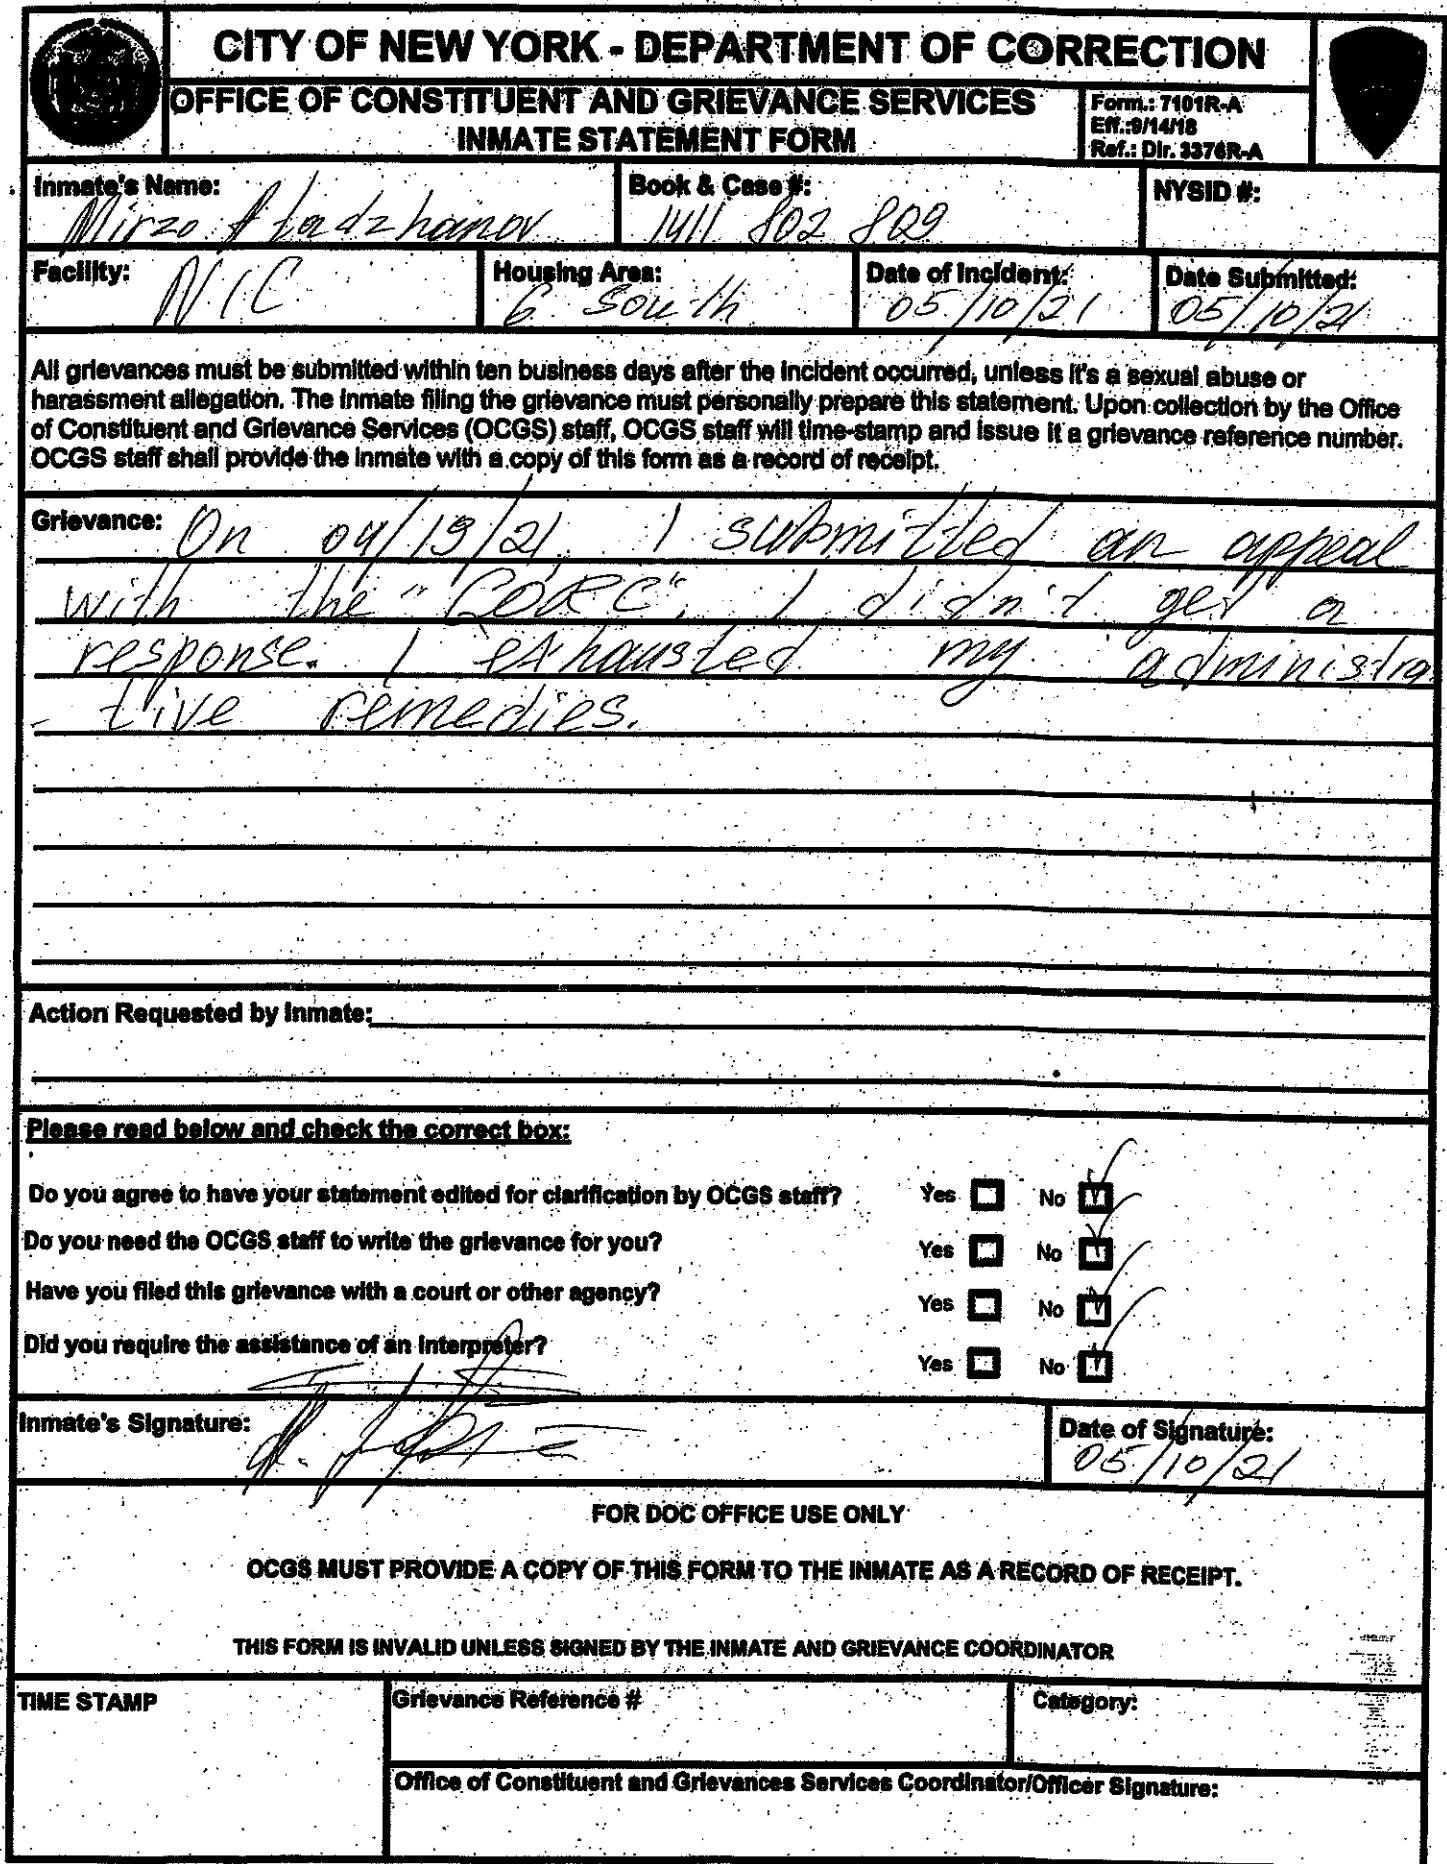 CITY OF NEW YORK - DEPARTMENT OF CORRECTION
OFFICE OF CONSTITUENT AND GRIEVANCE SERVICES
INMATE STATEMENT FORM
Form.: 7101R-A
Eff.:9/14/18
Ref.: Dir. 3376R-A
Inmate's Name:
Mirzo Atadzhanov
Book & Case #:
1411 802 809
NYSID #:
Facility:
NIC
Housing Area:
6 South
Date of Incident:
05/10/21
Date Submitted:
05/10/21
All grievances must be submitted within ten business days after the incident occurred, unless it's a sexual abuse or
harassment allegation. The inmate filing the grievance must personally prepare this statement. Upon collection by the Office
of Constituent and Grievance Services (OCGS) staff, OCGS staff will time-stamp and issue it a grievance reference number.
OCGS staff shall provide the inmate with a copy of this form as a record of receipt.
Grievance: On 04/19/21, I submitted an appeal
with the "CORC". I didn't get a
response. I exhausted my administra
- tive remedies.
Action Requested by Inmate:
Please read below and check the correct box:
Do you agree to have your statement edited for clarification by OCGS staff? Yes No
Do you need the OCGS staff to write the grievance for you? Yes No
Have you filed this grievance with a court or other agency? Yes No
Did you require the assistance of an interpreter? Yes No
Inmate's Signature:
Date of Signature:
05/10/21
FOR DOC OFFICE USE ONLY
OCGS MUST PROVIDE A COPY OF THIS FORM TO THE INMATE AS A RECORD OF RECEIPT.
THIS FORM IS INVALID UNLESS SIGNED BY THE INMATE AND GRIEVANCE COORDINATOR
TIME STAMP
Grievance Reference #
Category:
Office of Constituent and Grievances Services Coordinator/Officer Signature: